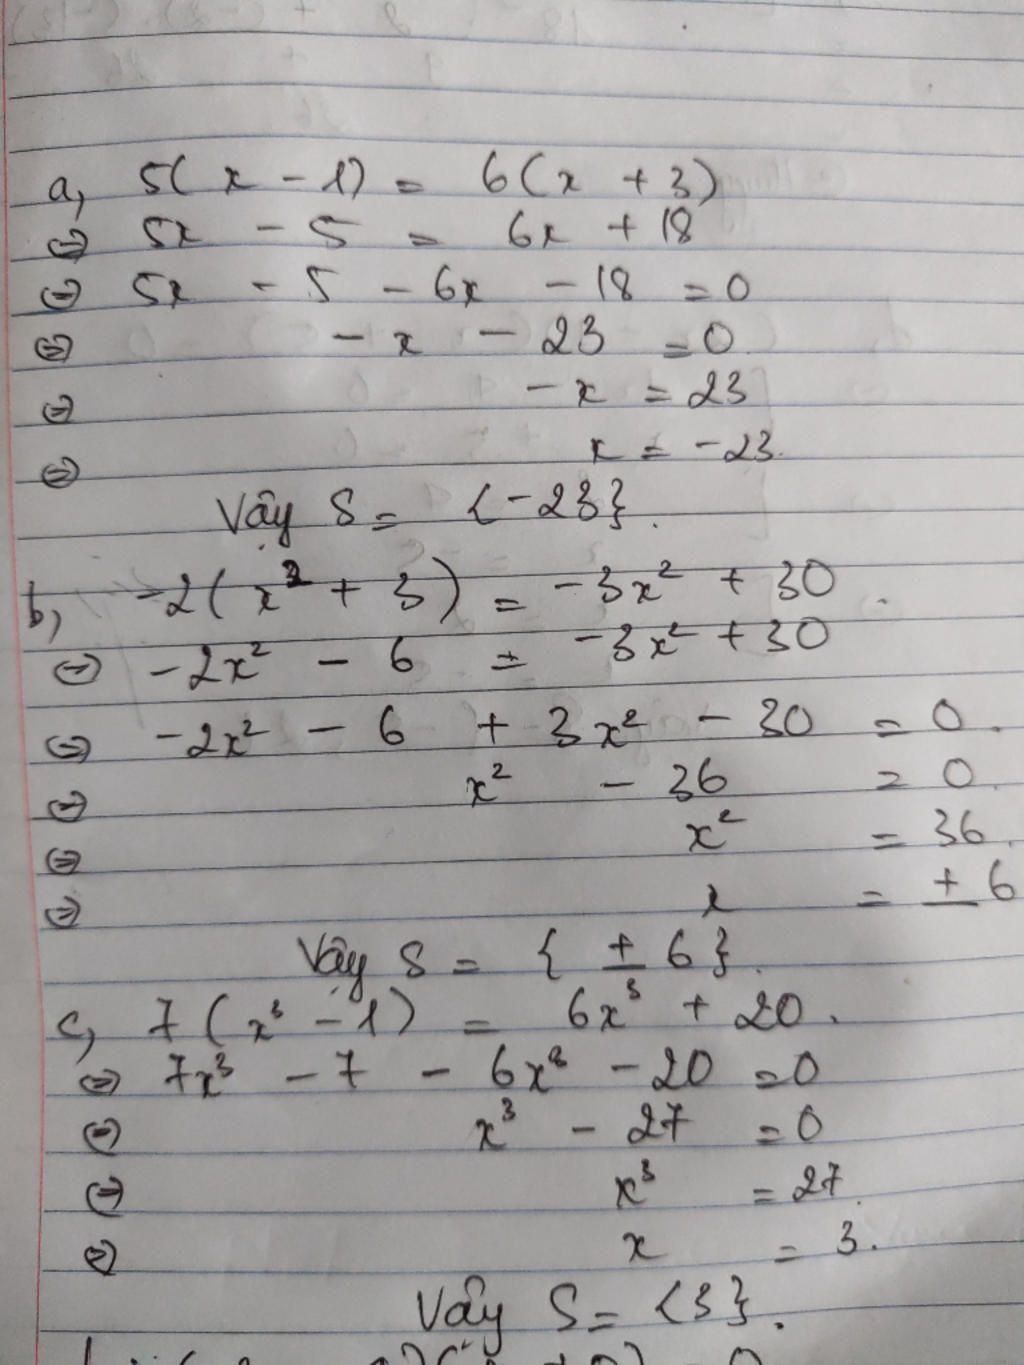 a, 5(x - 1) = 6(x + 3)
⇔ 5x - 5 = 6x + 18
⇔ 5x - 5 - 6x - 18 = 0
⇔ - x - 23 = 0
⇔ - x = 23
⇔ x = -23.
Vậy S = {-23}.
b, -2(x² + 3) = -3x² + 30.
⇔ -2x² - 6 = -3x² + 30
⇔ -2x² - 6 + 3x² - 30 = 0.
⇔ x² - 36 = 0.
⇔ x² = 36.
⇔ x = ± 6
Vậy S = { ± 6}.
c, 7(x³ - 1) = 6x³ + 20.
⇔ 7x³ - 7 - 6x³ - 20 = 0
⇔ x³ - 27 = 0
⇔ x³ = 27.
⇔ x = 3.
Vậy S = {3}.